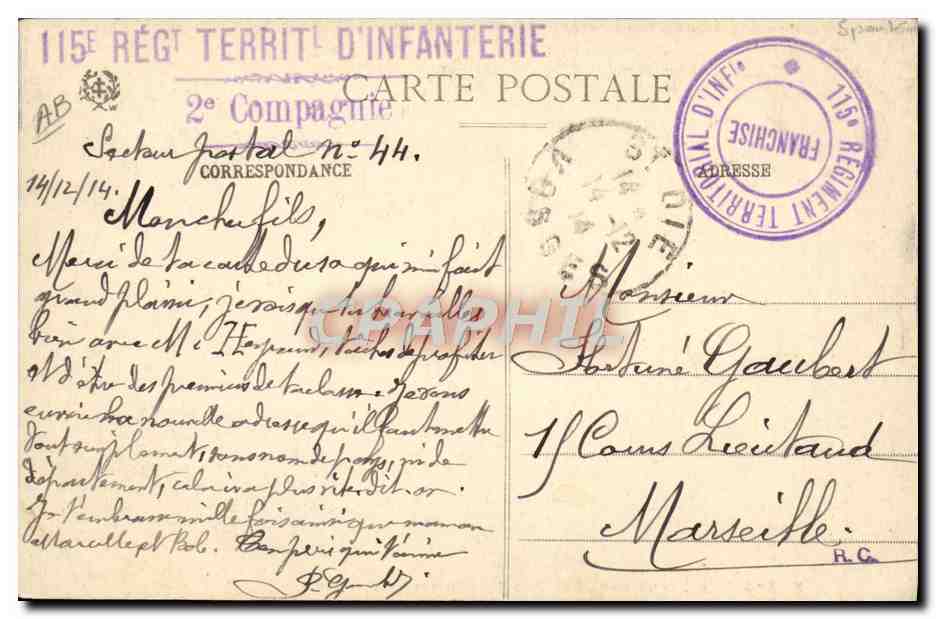 115E RÉGT TERRITL D'INFANTERIE
2e Compagnie
CARTE POSTALE
AB
Secteur postal No 44.
CORRESPONDANCE
ADRESSE
115e RÉGIMENT TERRITORIAL D'INFIe
FRANCHISE
ST DIE
VOSGES
14-12
14
14/12/14.
Mon cher fils,
Merci de ta carte du 10 qui m'a fait
grand plaisir, je vois que tu travailles
bien avec Mr, tâches de profiter
et d'être des premiers de ta classe. Je vous
envoie ma nouvelle adresse qu'il faut mettre
tout simplement, sans nom de pays, ni de
département, cela ira plus vite dit-on.
Je t'embrasse mille fois ainsi que maman
Marcelle et Bob. Ton père qui t'aime
Monsieur
Fortuné Gaubert
15 Cours Lieutaud
Marseille.
R.C.
CPAPHIL